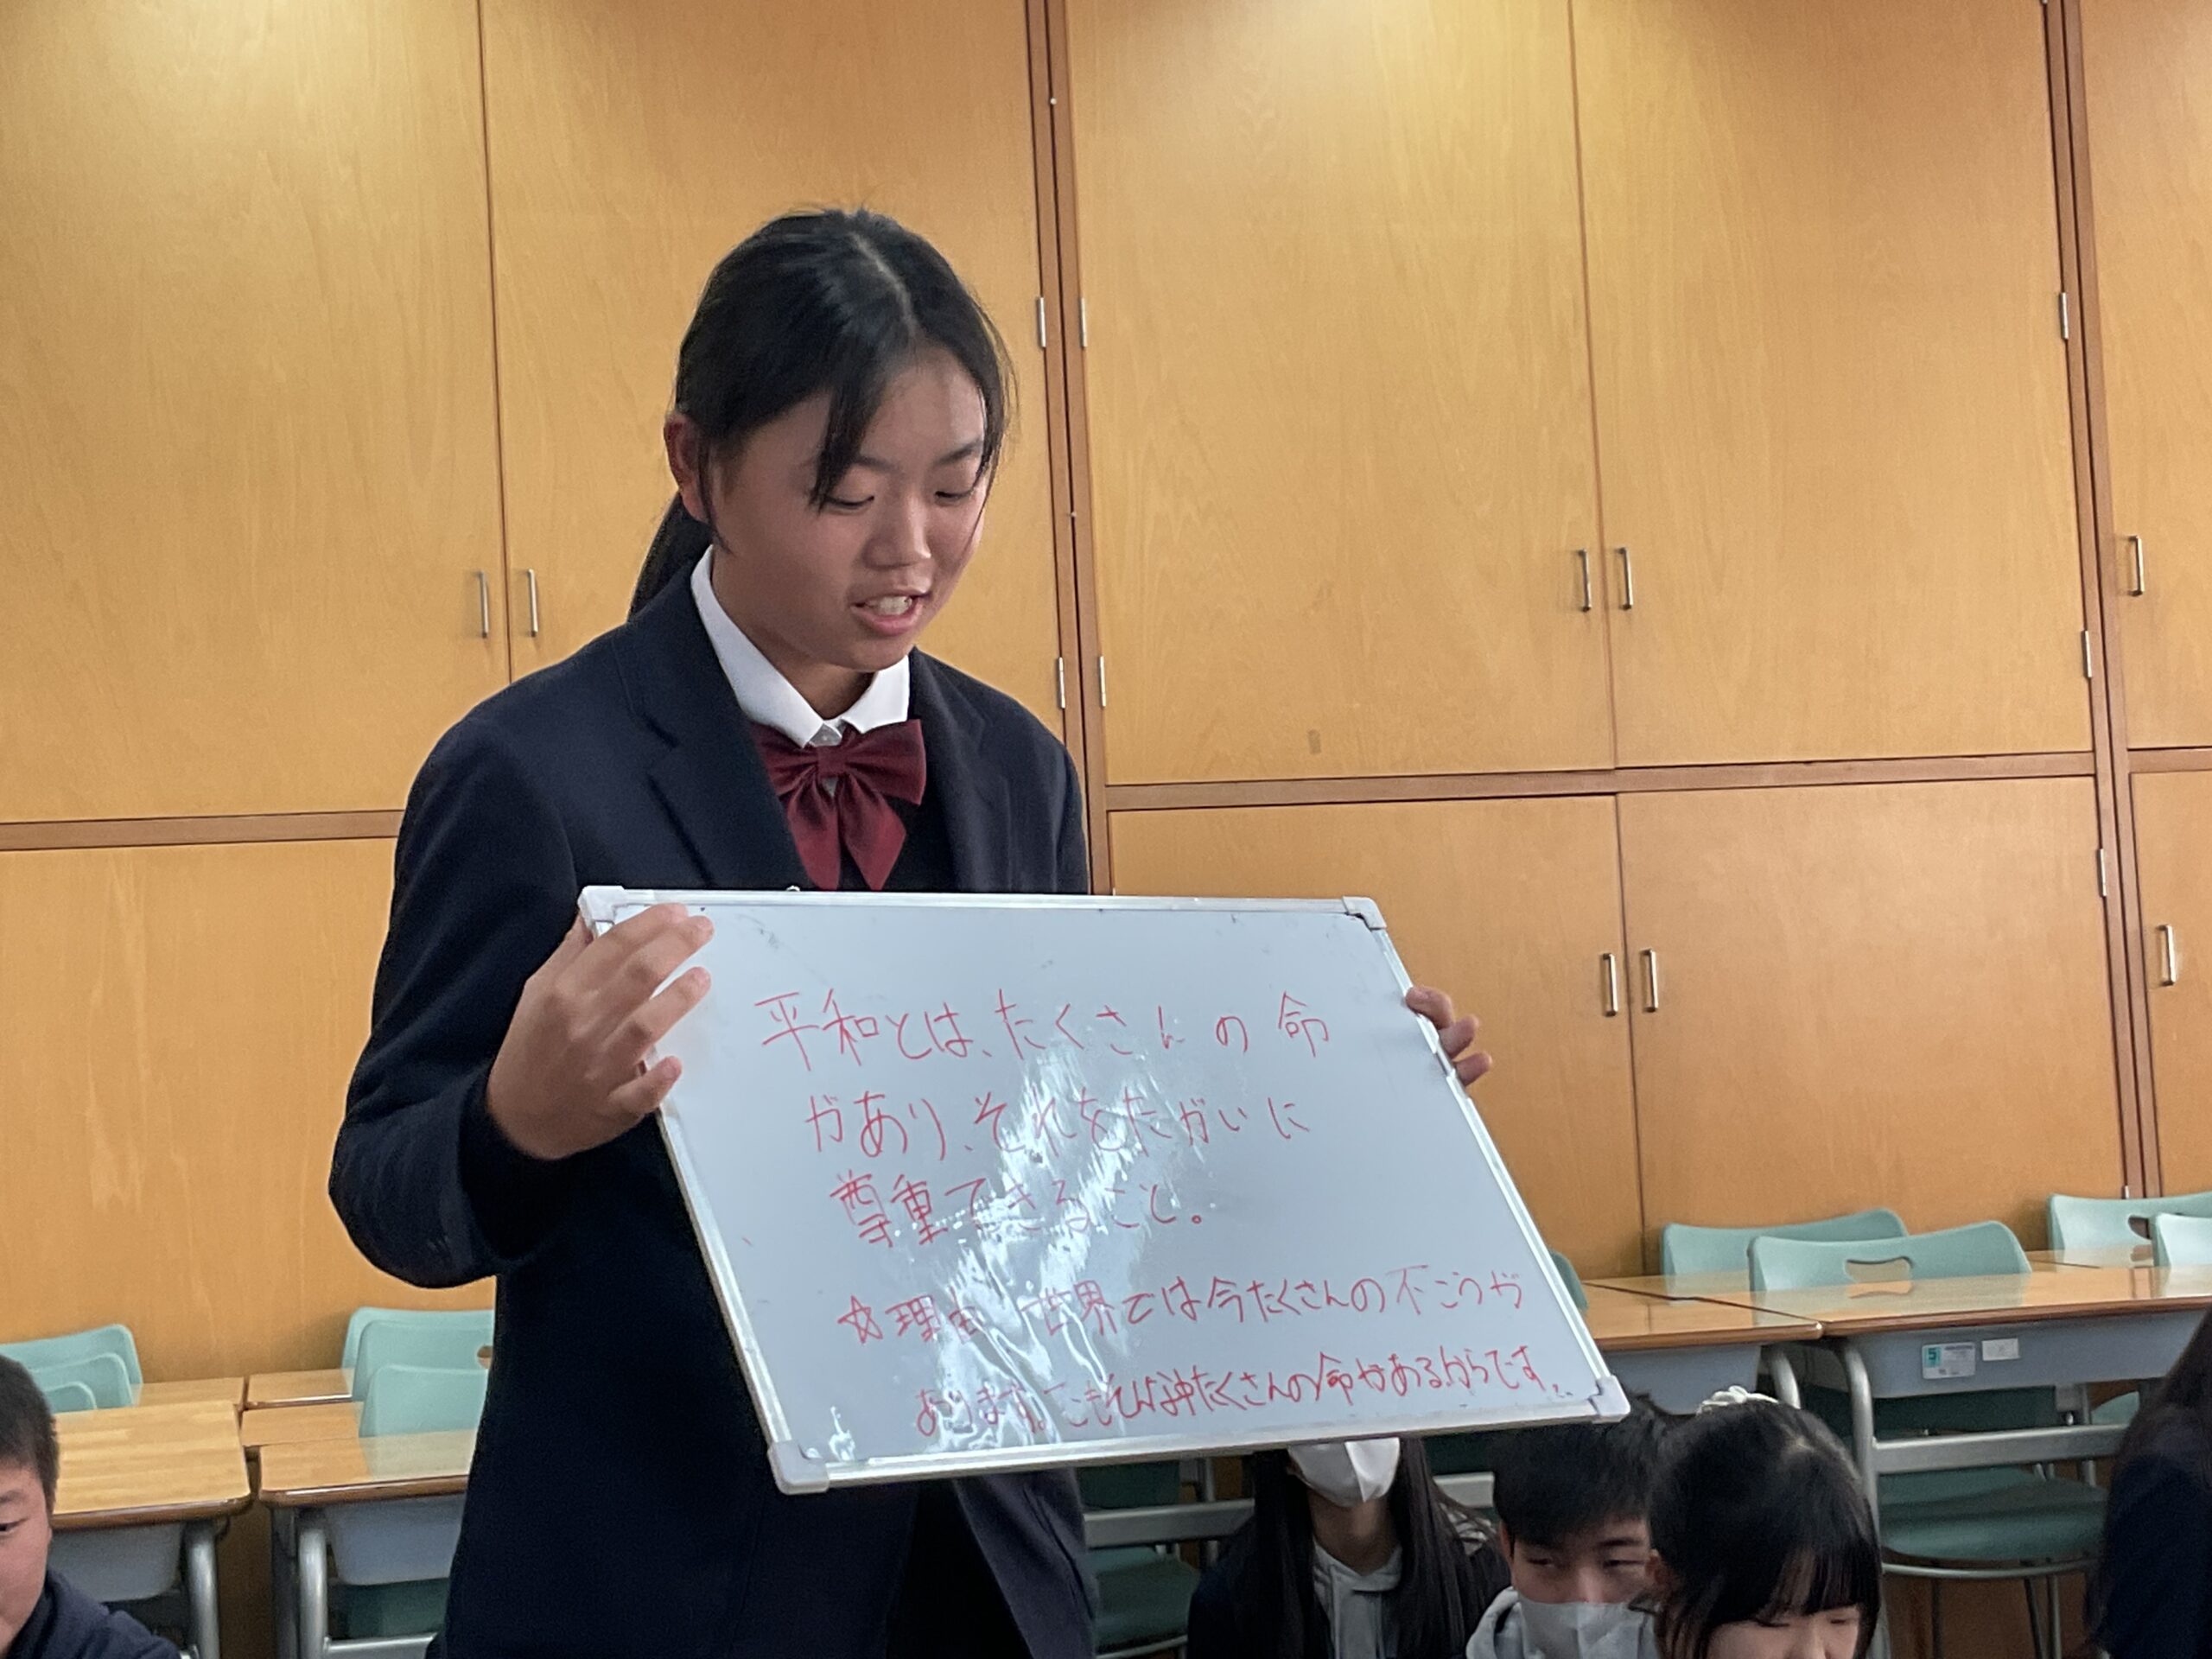 平和とは、たくさんの命
があり、それをたがいに
尊重できること。
☆理由 世界では今たくさんの不こうが
あります。たくさんの命があるからです。